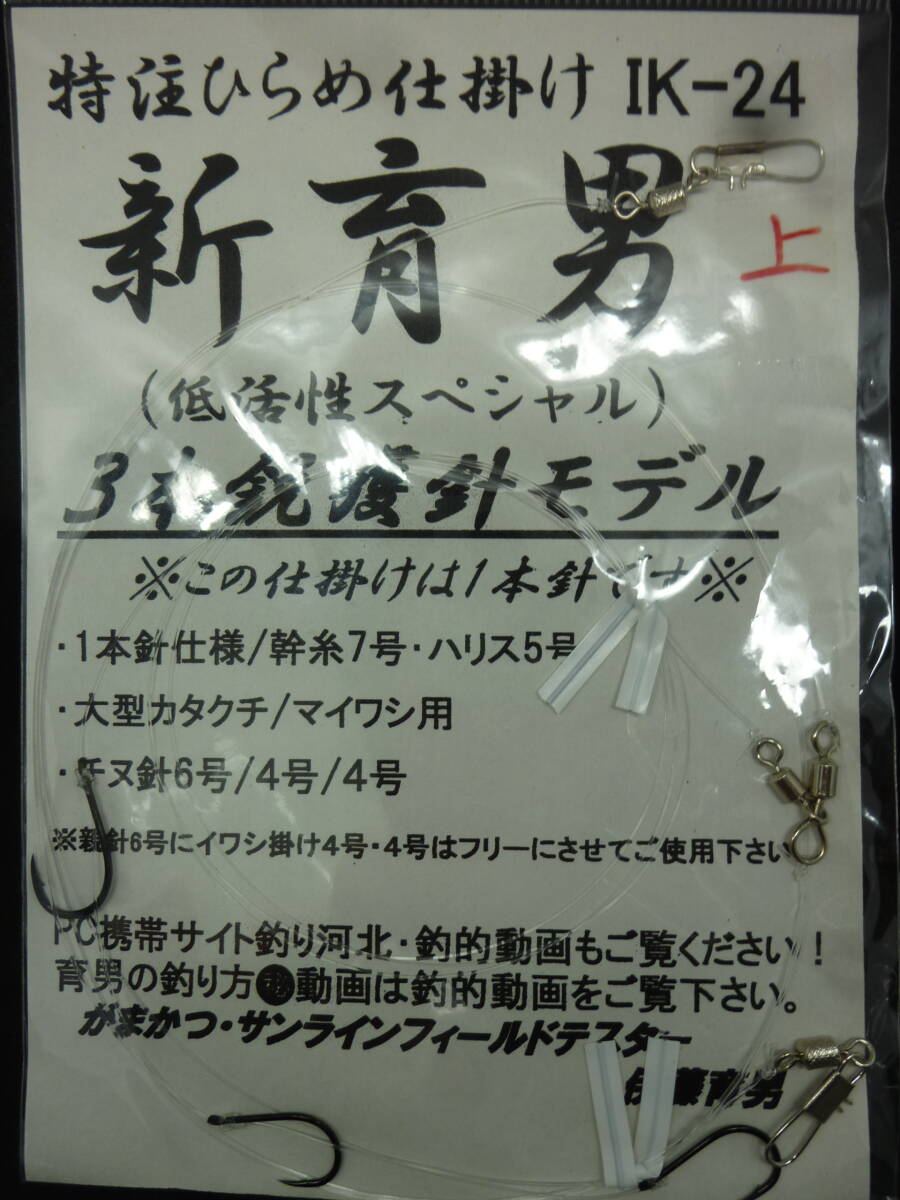 特注ひらめ仕掛け IK-24
新育男
上
(低活性スペシャル)
3本鋭護針モデル
※この仕掛けは1本針です※
・1本針仕様/幹糸7号・ハリス5号
・大型カタクチ/マイワシ用
・チヌ針6号/4号/4号
※親針6号にイワシ掛け4号・4号はフリーにさせてご使用下さい
PC携帯サイト釣り河北・釣的動画もご覧ください!
育男の釣り方㊙動画は釣的動画をご覧下さい。
がまかつ・サンラインフィールドテスター
伊藤育男